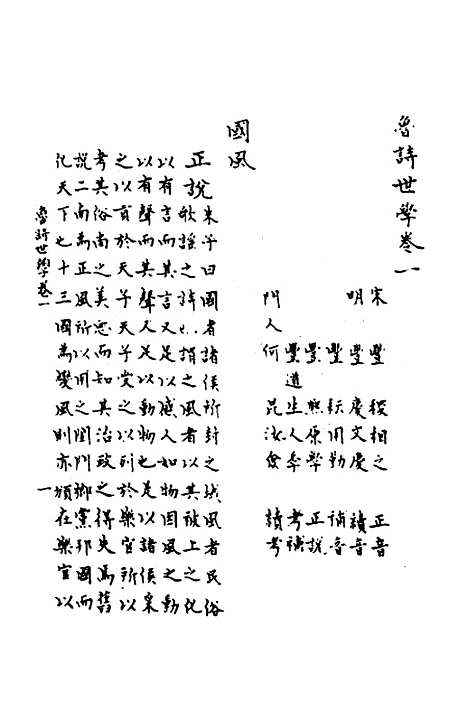 魯詩世學卷一
宋 豐 稷 相之 正音
明 豐 慶 文慶 續音
豐 耘 用勤 補音
豐 熙 原學 正說
豐 道生 人季 考補
門人 何 昆 汝 續考
國風
正說朱子曰國者諸侯所封之域風者民俗
歌謠之詩也謂之風者以其被上之化
以有言而其言又足以感人如物因風之動
以有聲而其聲又足以動物也是以諸侯采
之以貢於天子天子受之以列於樂官所以
考其俗尚之美惡而知其治政之得失焉舊
說二南為正風所以用之閨門鄉黨邦國而
化天下也十三國為變風則亦一領在樂官以
魯詩世學卷一 一